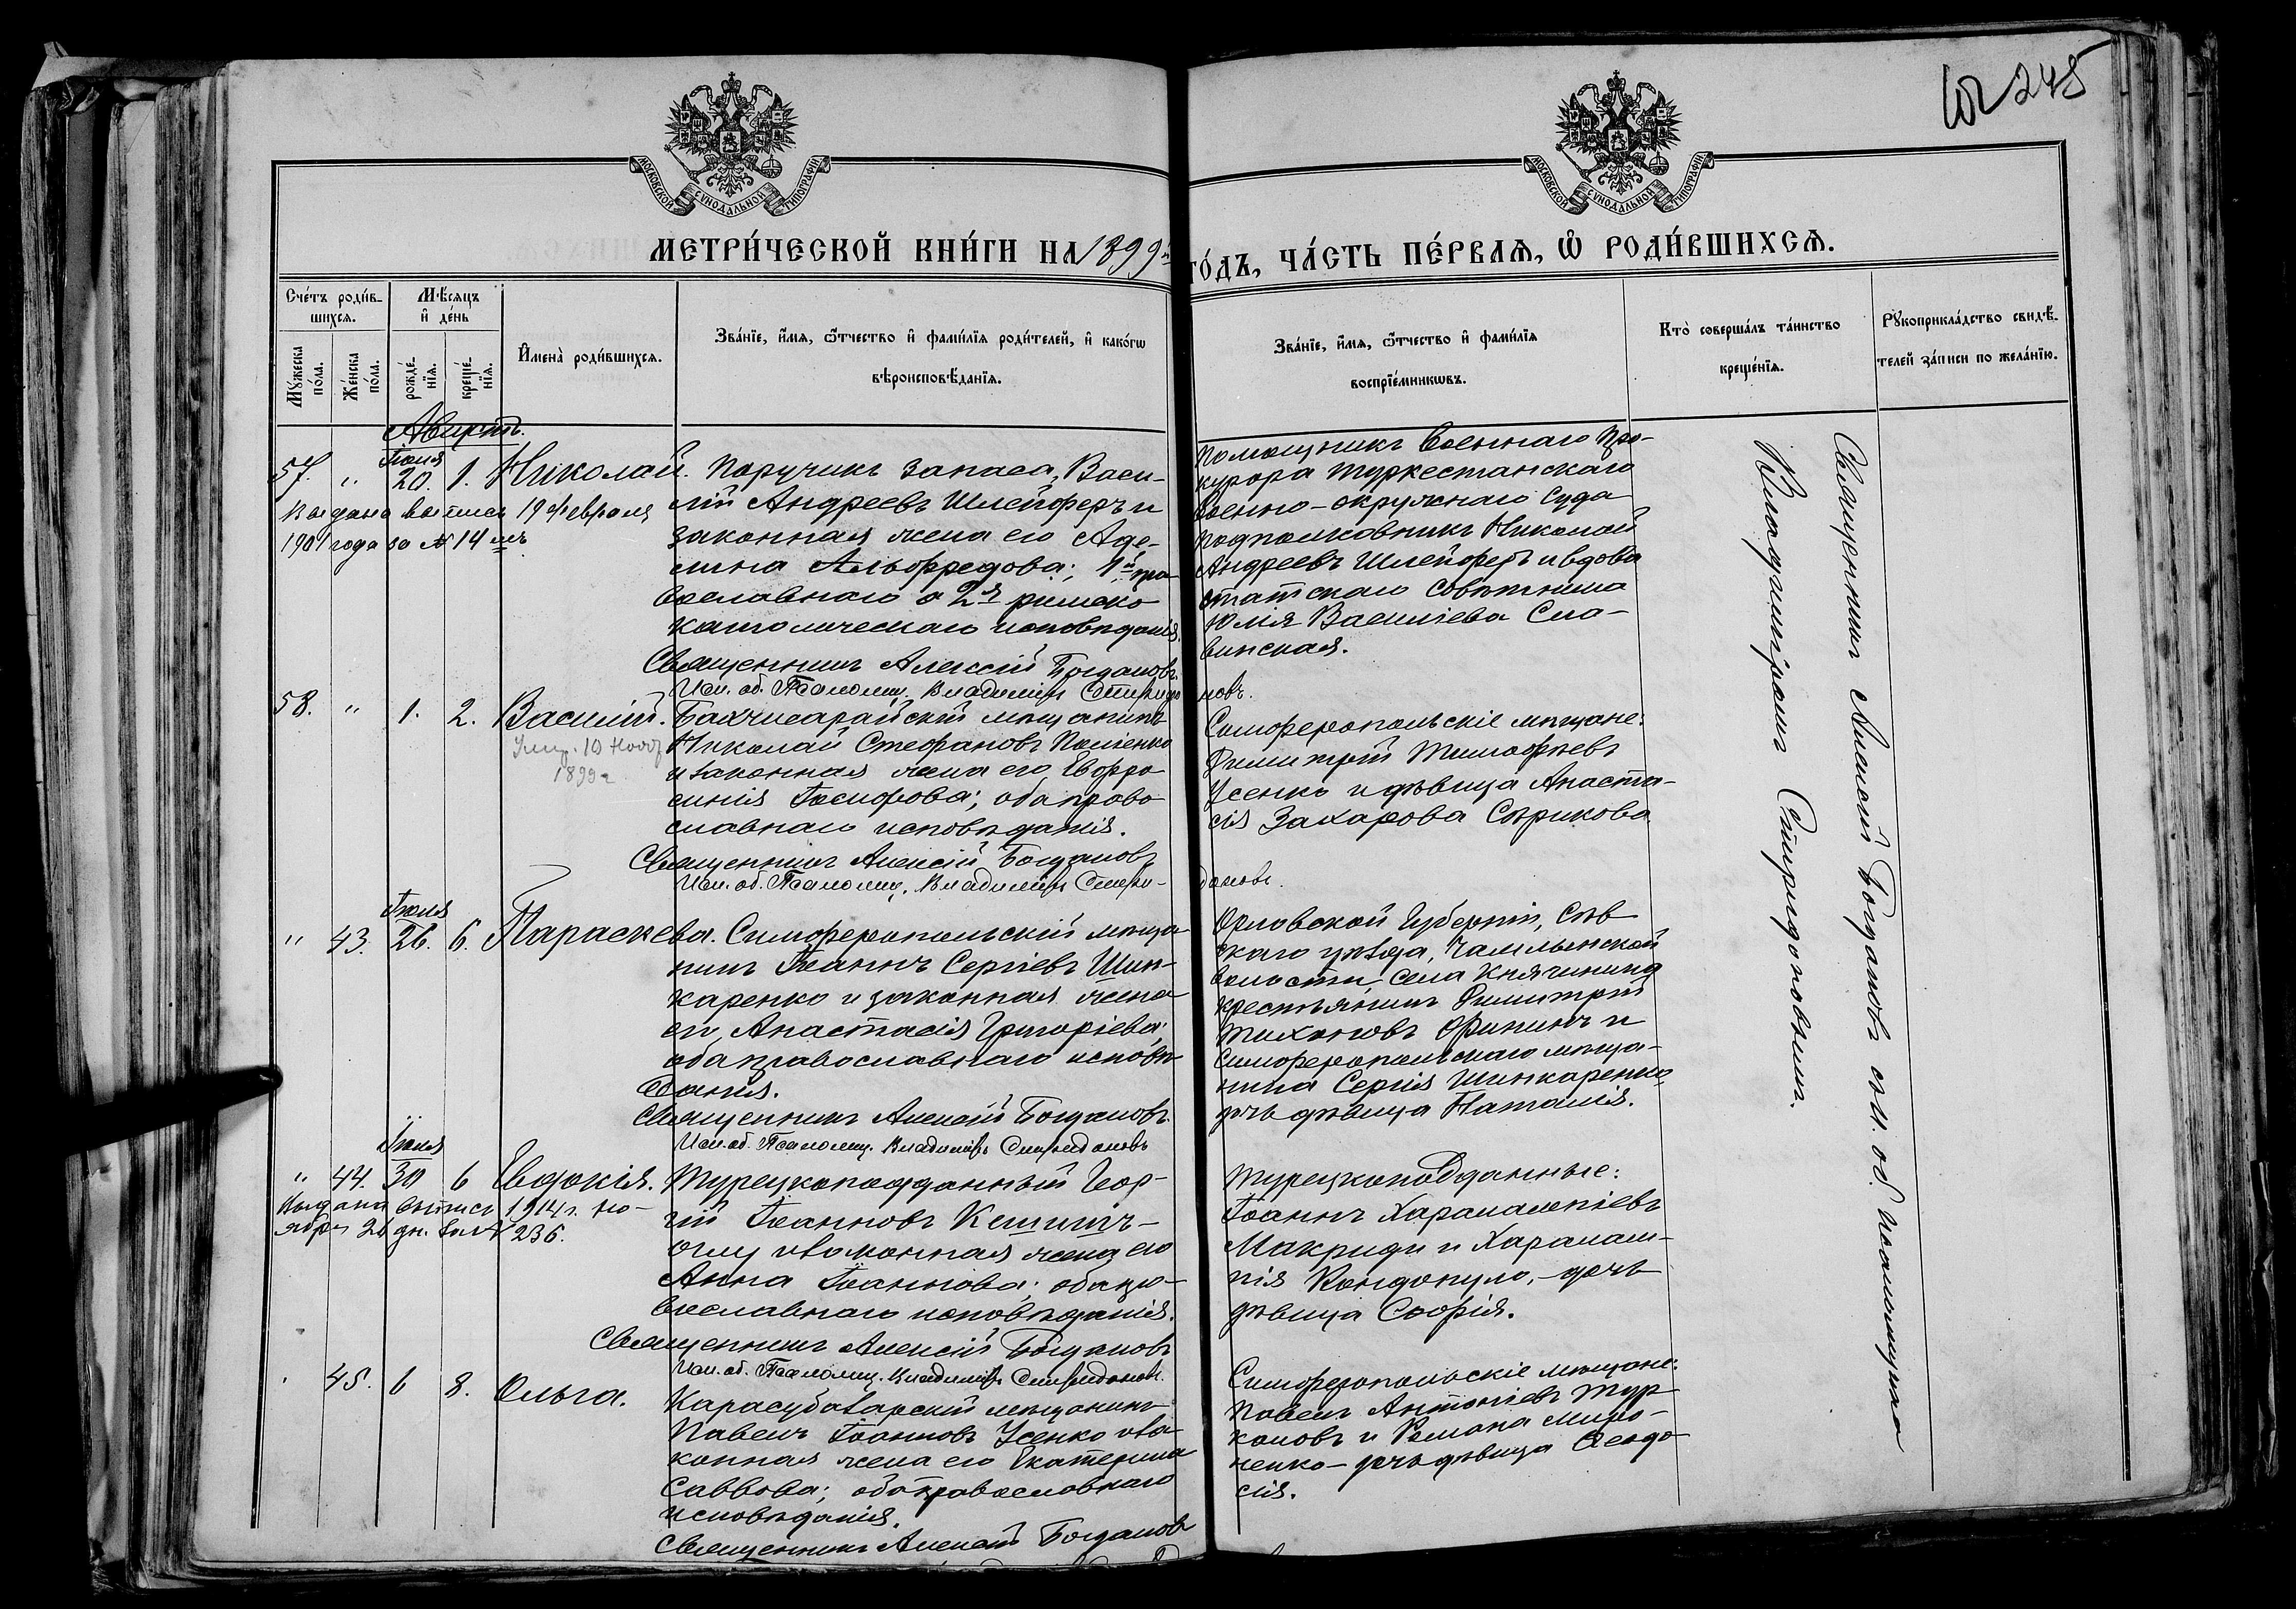 245
МОСКОВСКОЙ СѴНОДАЛЬНОЙ ТИПОГРАФІИ
МОСКОВСКОЙ СѴНОДАЛЬНОЙ ТИПОГРАФІИ
МЕТРИ́ЧЕСКОЙ КНИ́ГИ НА 1899й
ГО́ДЪ, ЧА́СТЬ ПЕ́РВАЯ, Ѡ РОДИ́ВШИХСЯ.
Сче́тъ роди́в-
шихся.
Мѣ́сяцъ
и҆ де́нь
Мꙋ́жеска по́ла.
Же́нска по́ла.
рожде́-
нїя.
креще́-
нїя.
И҆мена̀ роди́вшихся.
Зва́нїе, и҆́мя, ѻ҆́тчество и҆ фами́лїя роди́телей, и҆ како́гѡ
вѣроисповѣ́данїя.
Зва́нїе, и҆́мя, ѻ҆́тчество и҆ фами́лїя
воспрїе́мникѡвъ.
Кто̀ соверша́лъ та́инство
креще́нїя.
Рꙋкоприкла́дство свидѣ́-
телей за́писи по жела́нїю.
Августъ.
57. " Іюля 20. 1. Николай.
Выдана выпись 19 февраля
1901 года за № 14 мъ
Поручикъ запаса, Васи-
лій Андреевъ Шлейферъ и
законная жена его Аде-
лина Альфредова; 1й пра-
вославнаго а 2я римско
католическаго исповѣданія.
Священникъ Алексій Богдановъ.
Исп. об. Псаломщ. Владиміръ Спиридоновъ.
Помощникъ Военнаго Про-
курора Туркестанскаго
Военно-окружнаго Суда
подполковникъ Николай
Андреевъ Шлейферъ и вдова
статскаго совѣтника
Юлія Васильева Сла-
винская.
58. " 1. 2. Василій.
Ум. 10 Нояб
1899 г
Бахчисарайскій мѣщанинъ
Николай Стефановъ
и законная жена его Евфро-
синія Іосифова; оба право-
славнаго исповѣданія.
Священникъ Алексій Богдановъ
Исп. об. Псаломщ. Владиміръ Спири-
доновъ.
Симферопольскіе мѣщане:
Димитрій Тимофеевъ
Усенко и дѣвица Анаста-
сія Захарова Сѣрикова
" 43. Іюля 26. 6. Параскева.
Симферопольскій мѣща-
нинъ Іоаннъ Сергіевъ Шин-
каренко и законная жена
его, Анастасія Григоріева;
оба православнаго исповѣ-
данія.
Священникъ Алексій Богдановъ.
Исп. об. Псаломщ. Владиміръ Спиридоновъ
Орловской Губерніи, Сѣв-
скаго уѣзда,
волости, села Княгинина
крестьянинъ Димитрій
Тихоновъ и
Симферопольскаго мѣща-
нина Сергія Шинкаренко,
дочь дѣвица Наталія.
" 44. Іюля 30 6 Евдокія.
Выдана выпись 1914 г. но-
ября 26 дн. за № 236.
Турецкоподданный Геор-
гій Іоанновъ Кешишъ-
оглу и законная жена его
Анна Іоаннова; оба пра-
вославнаго исповѣданія.
Священникъ Алексій Богдановъ
Исп. об. Псаломщ. Владиміръ Спиридоновъ.
Турецкоподданные:
Іоаннъ Харалампіевъ
Макриди и Харалам-
пія Кондопуло, - дочь
дѣвица Софія.
45. 6 8. Ольга.
Карасубазарскій мѣщанинъ
Павелъ Іоанновъ Усенко и за-
конная жена его Екатерина
Саввова; оба православнаго
исповѣданія.
Священникъ Алексій Богдановъ
Симферопольскіе мѣщане:
Павелъ Антоніевъ Тур-
кановъ и Романа Миро-
ненко - дочь дѣвица Ѳеодо-
сія.
Священникъ Алексій Богдановъ съ и. об. псаломщика
Владиміромъ Спиридоновымъ.